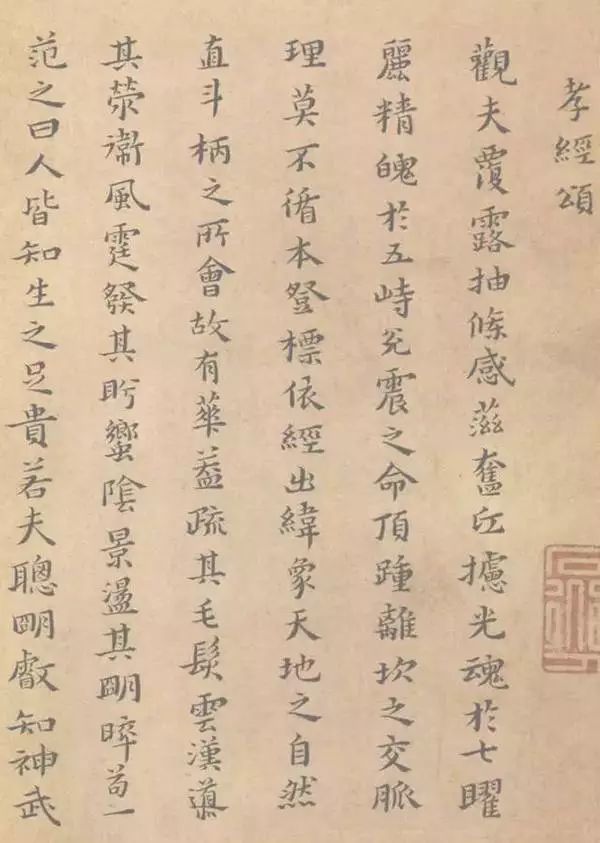 孝經頌
觀夫覆露抽條感滋奮丘攄光魂於七曜
麗精魄於五峙兌震之命頂踵離坎之交脈
理莫不循本登標依經出緯象天地之自然
直斗柄之所會故有華蓋疏其毛髮雲漢導
其滎衛風霆發其盻蠁陰景盪其明晬苟一
范之曰人皆知生之足貴若夫聰明叡知神武